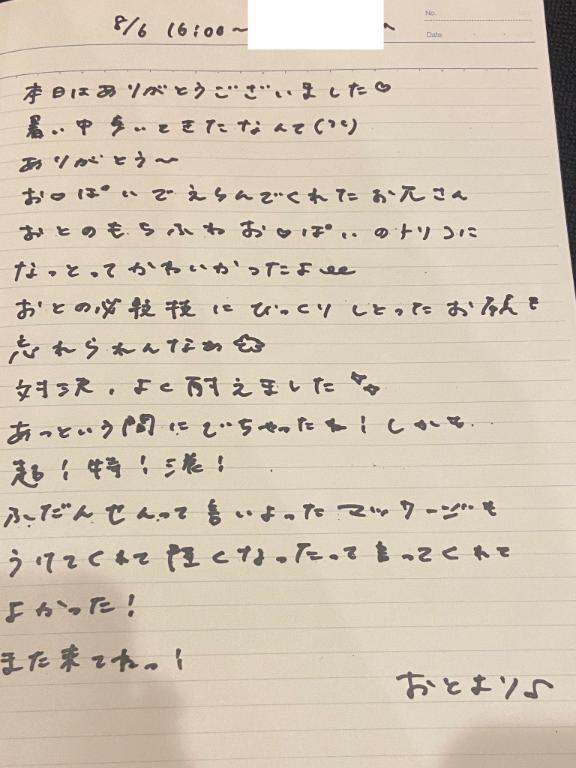 8/6 16:00〜
No.
Date
本日はありがとうございました♡
暑い中歩いてきたなんて(°°)
ありがとう〜
お♡ぱいでえらんでくれたお兄さん
おとのもちふわお♡ぱいのトリコに
なっとってかわいかったよ
おとの必殺技にびっくりしとったお顔も
忘れられんなぁ
対決、よく耐えました
あっという間にでちゃったね!しかも
超!特!濃!
ふだんせんって言いよったマッサージも
うけてくれて軽くなったって言ってくれて
よかった!
また来てねっ!
おとより♪